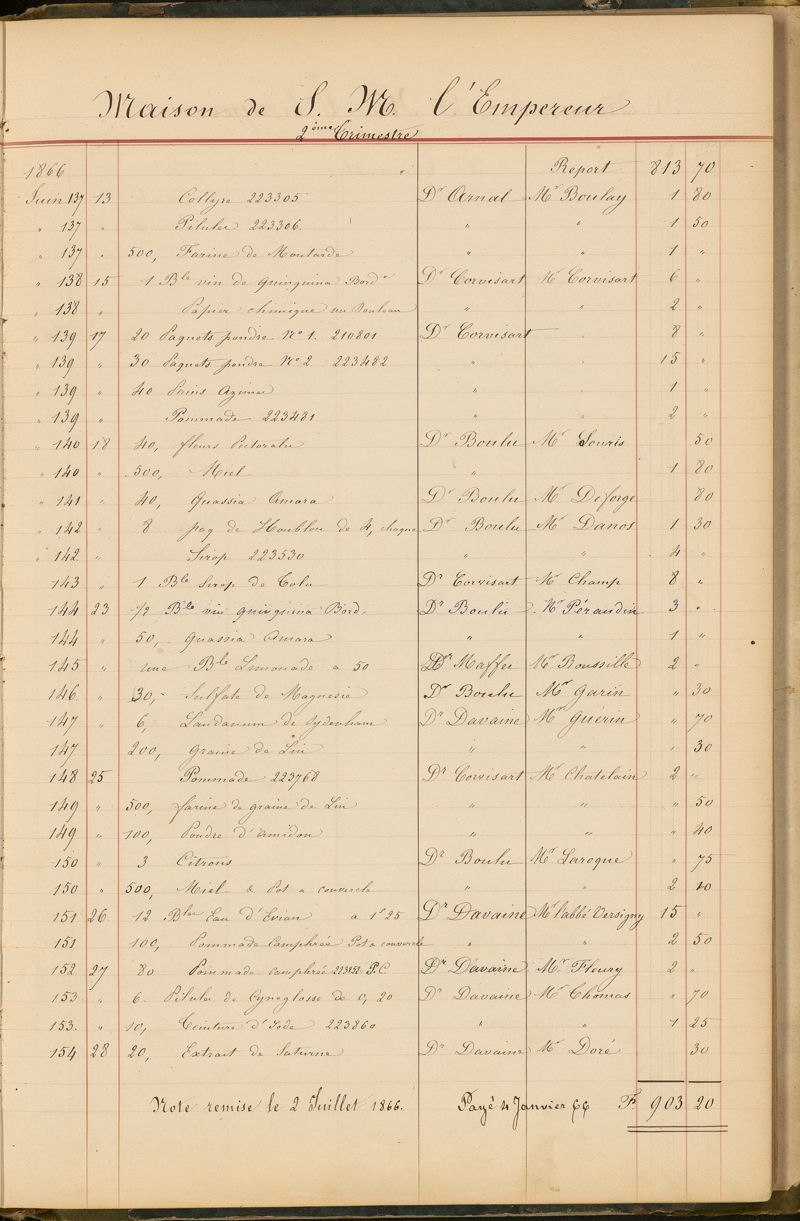 Maison de S. M. l'Empereur
2ème Trimestre
1866 " Report 813 70
Juin 137 13 Collyre 223305 Dr Arnal Mr Boulay 1 80
" 137 " Pilules 223306 " " 1 50
" 137 " 500, Farine de Moutarde " " 1 "
" 138 15 1 Ble vin de quinquina Bordx Dr Corvisart Mr Corvisart 6 "
" 138 " Papier chimique un Rouleau " " 2 "
" 139 17 20 Paquets poudre No 1. 210801 Dr Corvisart 8 "
" 139 " 30 Paquets poudre No 2 223482 " 15 "
" 139 " 40 Pains Azimes " 1 "
" 139 " Pommade 223481 " " 2 "
" 140 18 40, fleurs Pectorales Dr Boulu Mr Souris 50
" 140 " 500, Miel " 1 80
" 141 " 40, Quassia Amara Dr Boulu Mr Deforge 80
" 142 " 8 paq de Houblon de 4, chaque Dr Boulu Mr Danos 1 30
" 142 " Sirop 223530 " " 4 "
143 " 1 Ble Sirop de Tolu Dr Corvisart Mr Champ 8 "
144 23 1/2 Ble vin quinquina Bord. Dr Boulu Mr Péraudin 3 "
144 " 50, quassia Amara " " 1 "
145 " une Ble Limonade a 50 Dr Maffei Mr Roussille 2 "
146 " 30,- Sulfate de Magnésie Dr Boulu Mr Garin " 30
147 " 6, Laudanum de Sydenham Dr Davaine Mr Guérin " 70
147 200, Graine de Lin " " " 30
148 25 Pommade 223768 Dr Corvisart Mr Chatelain 2 "
149 " 500, farine de graine de Lin " " " 50
149 " 100, Poudre d'amidon " " " 40
150 " 3 Citrons Dr Boulu Mr Laroque " 75
150 " 500, Miel & Pot a couvercle " " 2 10
151 26 12 Bles Eau d'Evian a 1f 25 Dr Davaine Mr l'abbé Versigny 15 "
151 100, Pommade camphrée Pot a couvercle " " 2 50
152 27 80 Pommade camphrée P.C Dr Davaine Mr Fleury 2 "
153 " 6. Pilules de Cynoglosse de 0, 20 Dr Davaine Mr Thomas " 70
153. " 10, Teinture d'Iode 223860 " " 1 25
154 28 20, Extrait de Saturne Dr Davaine Mr Doré 30
Note remise le 2 Juillet 1866. Payé 4 Janvier 66 F. 903 20